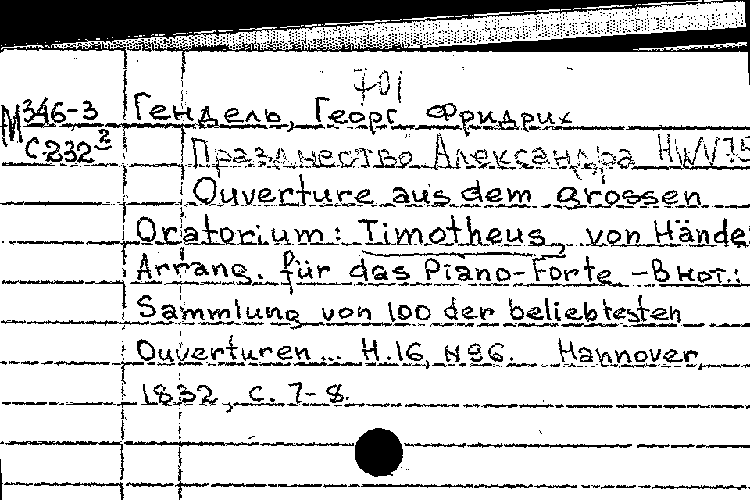 701
М 346-3 Гендель, Георг Фридрих
С 232² Празднество Александра HWV 75
Ouverture aus dem grossen
Oratorium: Timotheus, von Hände
Arrang. für das Piano-Forte – В нот.:
Sammlung von 100 der beliebtesten
Ouverturen... H.16, N 96. Hannover,
1832, с. 7-8.